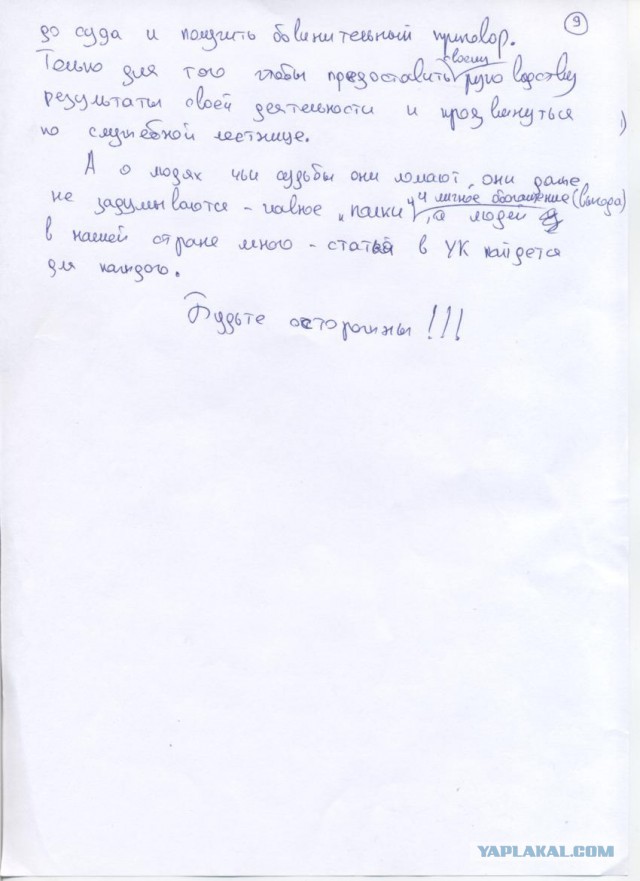 9
до суда и получить обвинительный приговор.
своему
Только для того чтобы предоставить руководству
результаты своей деятельности и продвинуться
по служебной лестнице.
А о людях чьи судьбы они ломают, они даже
и личное обогащение (выгода)
не задумываются - главное "палки", а людей
в нашей стране много - статья в УК найдется
для каждого.
Будьте осторожны!!!
YAPLAKAL.COM